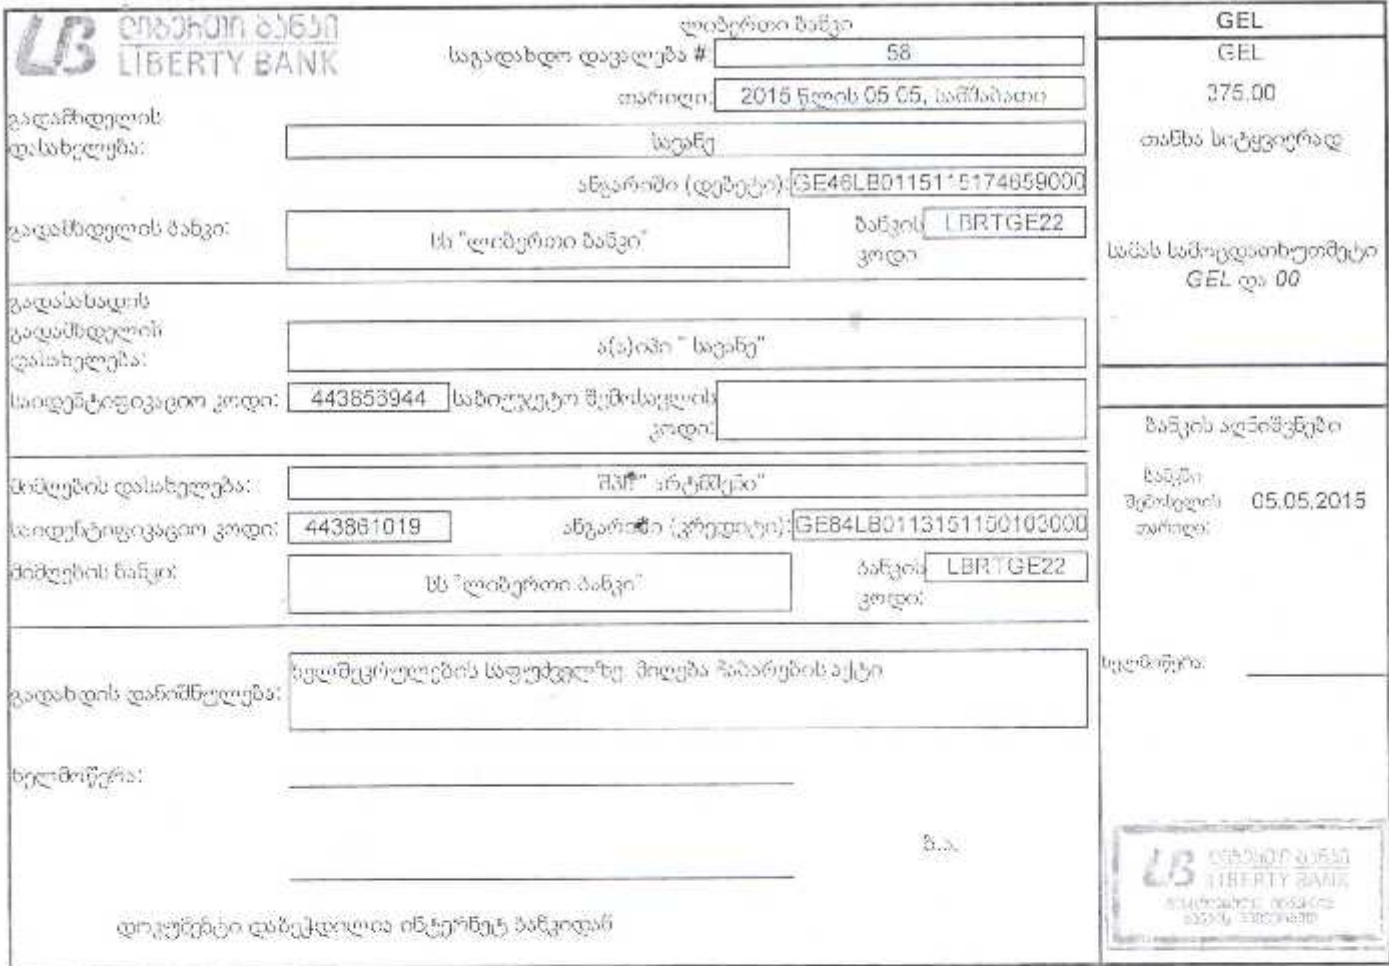 ლიბერთი ბანკი
LIBERTY BANK
ლიბერთი ბანკი
საგადახდო დავალება # 58
თარიღი: 2015 წლის 05 05, სამშაბათი
გადამხდელის
დასახელება: სავანე
ანგარიში (დებეტი): GE46LB0115115174659000
გადამხდელის ბანკი: სს "ლიბერთი ბანკი" ბანკის LBRTGE22
კოდი
გადასახადის
გადამხდელის
დასახელება: ა(ა)იპი " სავანე"
საიდენტიფიკაციო კოდი: 443853944 საბიუჯეტო შემოსავლის
კოდი:
მიმღების დასახელება: შპს " არტმშენი"
საიდენტიფიკაციო კოდი: 443861019 ანგარიში (კრედიტი): GE84LB0113151150103000
მიმღების ბანკი: სს "ლიბერთი ბანკი" ბანკის LBRTGE22
კოდი:
გადახდის დანიშნულება: ხელშეკრულების საფუძველზე მიღება ჩაბარების აქტი
ხელმოწერა:
ბ.ა.
დოკუმენტი დაბეჭდილია ინტერნეტ ბანკიდან
GEL
GEL
375.00
თანხა სიტყვიერად
სამას სამოცდათხუთმეტი
GEL და 00
ბანკის აღნიშვნები
ბანკში
შემოსვლის 05.05.2015
თარიღი:
ხელმოწერა:
ლიბერთი ბანკი
LIBERTY BANK